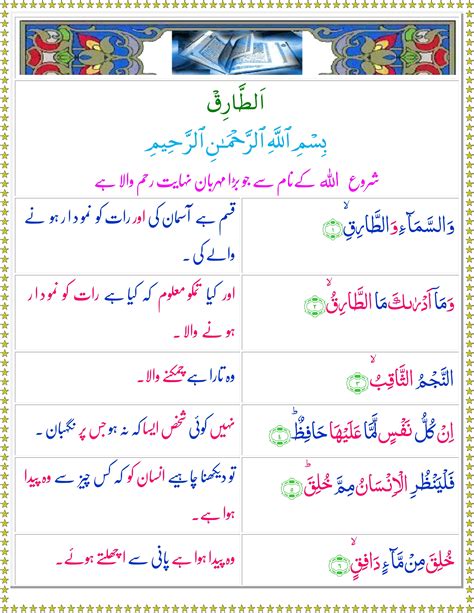 اَلطَّارِقْ
بِسْمِ ٱللَّهِ ٱلرَّحْمَٰنِ ٱلرَّحِيمِ
شروع الله کے نام سے جو بڑا مہربان نہایت رحم والا ہے
وَالسَّمَآءِ وَالطَّارِقِ ۙ ﴿۱﴾
قسم ہے آسمان کی اور رات کو نمودار ہونے
والے کی ۔
وَمَاۤ اَدْرٰىكَ مَا الطَّارِقُ ۙ ﴿۲﴾
اور کیا تمکو معلوم کہ کیا ہے رات کو نمودار
ہونے والا ۔
النَّجْمُ الثَّاقِبُ ۙ ﴿۳﴾
وہ تارا ہے چمکنے والا ۔
اِنْ كُلُّ نَفْسٍ لَّمَّا عَلَيْهَا حَافِظٌ ؕ ﴿۴﴾
نہیں کوئی شخص ایسا کہ نہ ہو جس پر نگہبان ۔
فَلْيَنْظُرِ الْاِنْسَانُ مِمَّ خُلِقَ ؕ ﴿۵﴾
تو دیکھنا چاہیے انسان کو کہ کس چیز سے وہ پیدا
ہوا ہے ۔
خُلِقَ مِنْ مَّآءٍ دَافِقٍ ۙ ﴿۶﴾
وہ پیدا ہوا ہے پانی سے اچھلتے ہوئے ۔